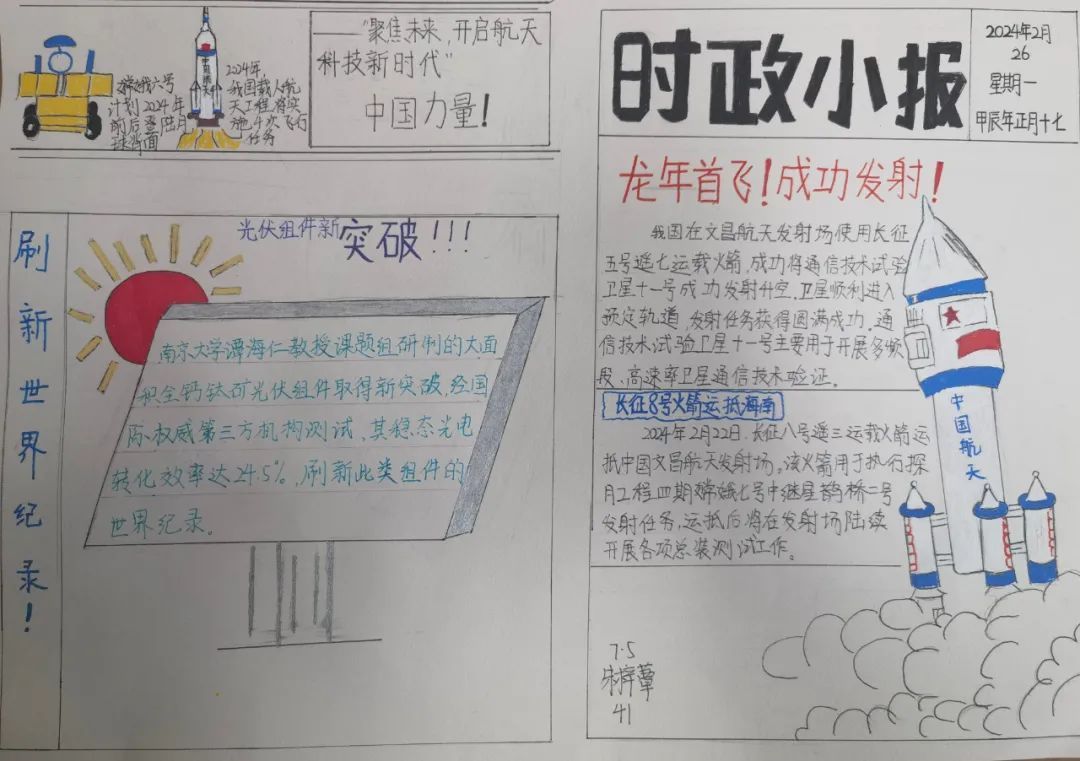 嫦娥六号
计划2024年
前后登陆月
球背面
中国航天
2024年,
我国载人航
天工程将实
施4次飞行
任务
——“聚焦未来,开启航天
科技新时代”
中国力量!
刷新世界纪录!
光伏组件新突破!!!
南京大学谭海仁教授课题组研制的大面
积全钙钛矿光伏组件取得新突破,经国
际权威第三方机构测试,其稳态光电
转化效率达24.5%,刷新此类组件的
世界纪录。
时政小报
2024年2月
26
星期一
甲辰年正月十七
龙年首飞!成功发射!
我国在文昌航天发射场使用长征
五号遥七运载火箭,成功将通信技术试验
卫星十一号成功发射升空,卫星顺利进入
预定轨道,发射任务获得圆满成功,通
信技术试验卫星十一号主要用于开展多频
段、高速率卫星通信技术验证。
长征8号火箭运抵海南
2024年2月22日,长征八号遥三运载火箭运
抵中国文昌航天发射场,该火箭用于执行探
月工程四期嫦娥七号中继星鹊桥二号
发射任务,运抵后将在发射场陆续
开展各项总装测试工作。
中国航天
7.5
41